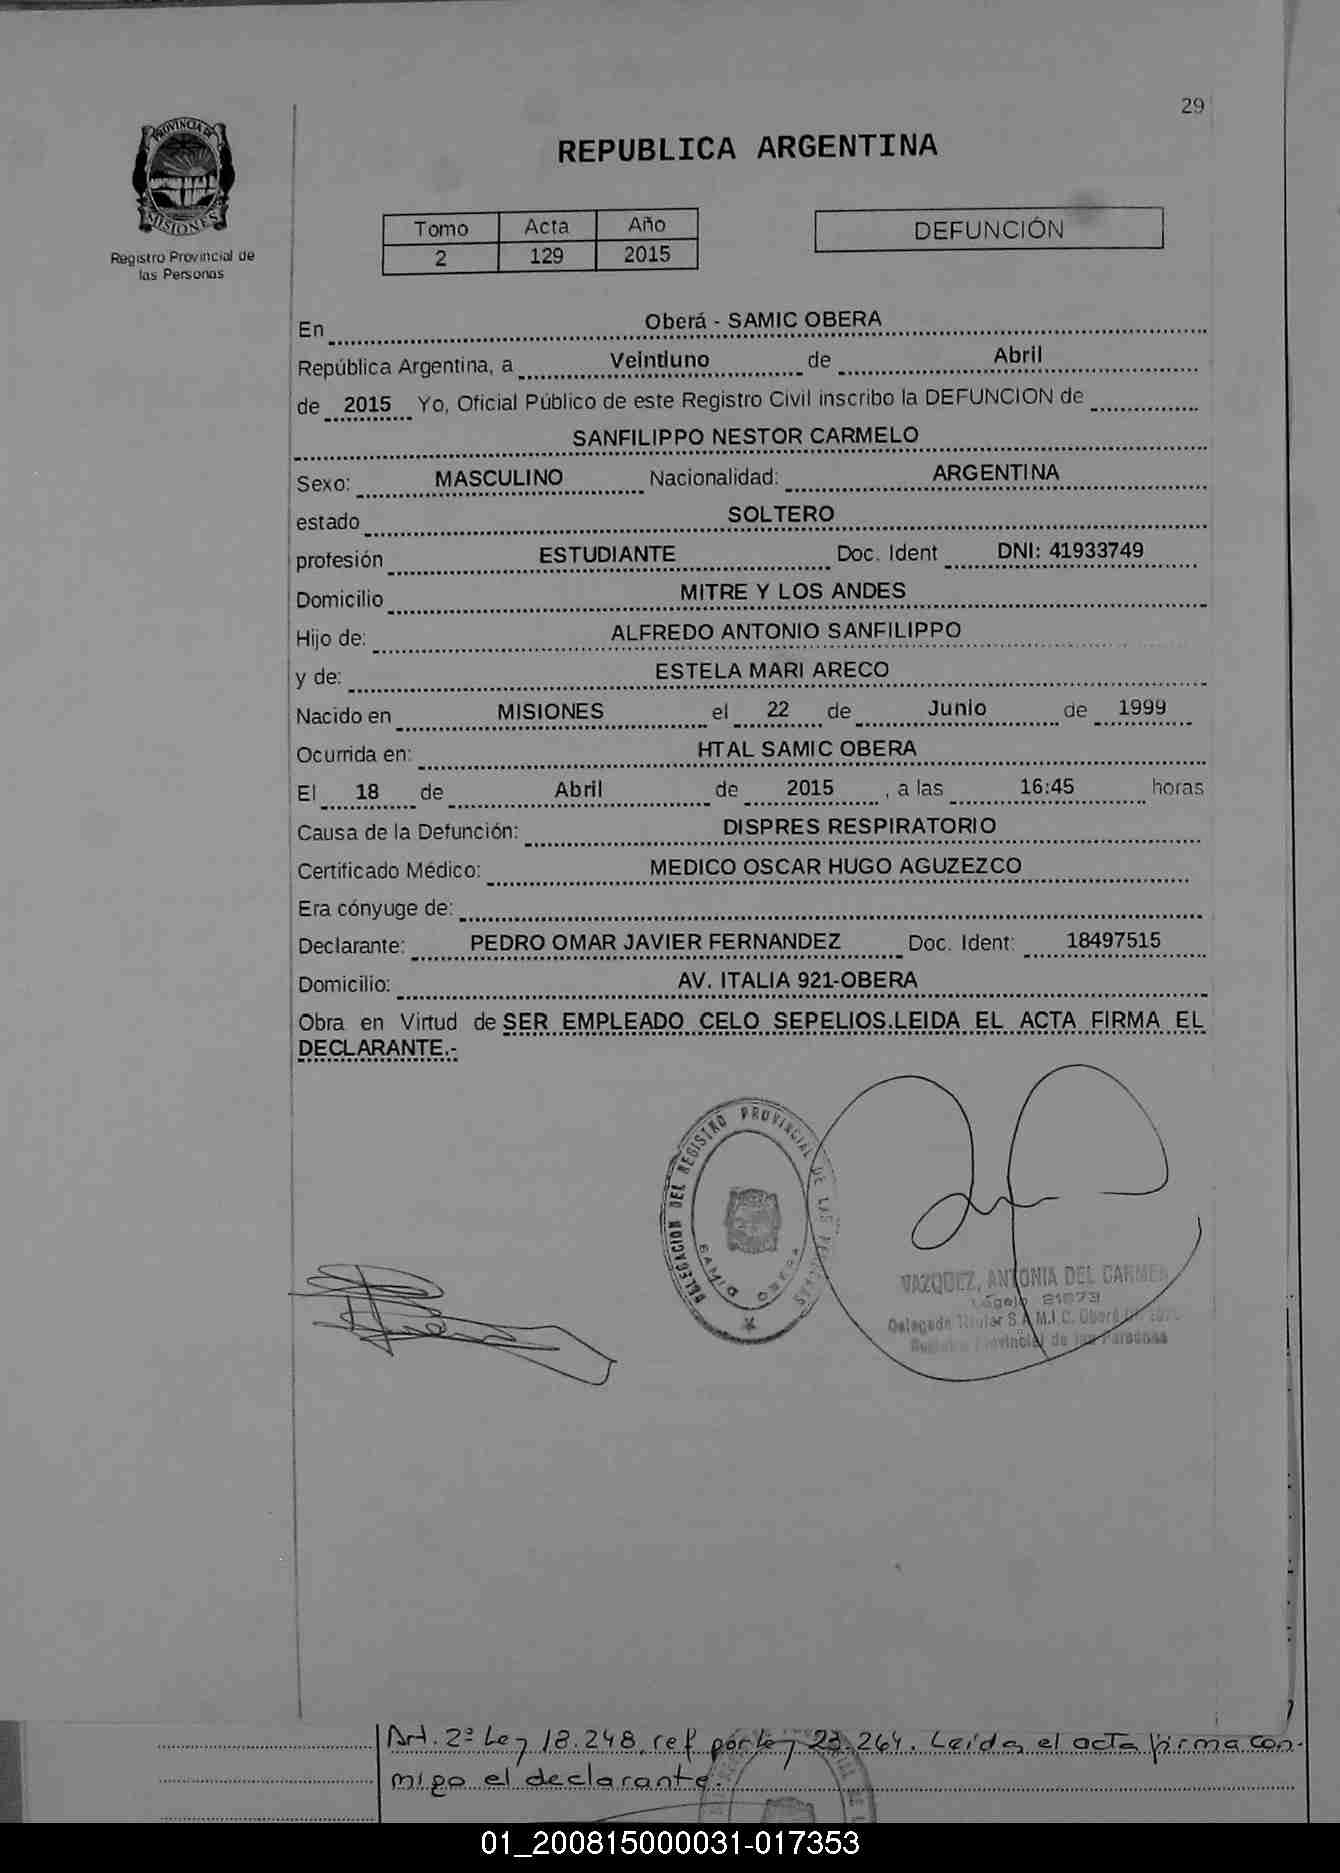 29
PROVINCIA DE
MISIONES
Registro Provincial de
las Personas
REPUBLICA ARGENTINA
Tomo Acta Año
2 129 2015
DEFUNCIÓN
En Oberá - SAMIC OBERA
República Argentina, a Veintiuno de Abril
de 2015 Yo, Oficial Público de este Registro Civil inscribo la DEFUNCION de
SANFILIPPO NESTOR CARMELO
Sexo: MASCULINO Nacionalidad: ARGENTINA
estado SOLTERO
profesión ESTUDIANTE Doc. Ident DNI: 41933749
Domicilio MITRE Y LOS ANDES
Hijo de: ALFREDO ANTONIO SANFILIPPO
y de: ESTELA MARI ARECO
Nacido en MISIONES el 22 de Junio de 1999
Ocurrida en: HTAL SAMIC OBERA
El 18 de Abril de 2015 , a las 16:45 horas
Causa de la Defunción: DISPRES RESPIRATORIO
Certificado Médico: MEDICO OSCAR HUGO AGUZEZCO
Era cónyuge de:
Declarante: PEDRO OMAR JAVIER FERNANDEZ Doc. Ident: 18497515
Domicilio: AV. ITALIA 921-OBERA
Obra en Virtud de SER EMPLEADO CELO SEPELIOS.LEIDA EL ACTA FIRMA EL
DECLARANTE.-
DELEGACION DEL REGISTRO PROVINCIAL DE LAS PERSONAS
SAMIC OBERA
VAZQUEZ, ANTONIA DEL CARMEN
Legajo
Delegada Titular S.A.M.I.C. Oberá
Registro Provincial de las Personas
Art. 2º Ley 18.248, ref por ley 23.264. Leída el acta firma con-
migo el declarante.
01_200815000031-017353